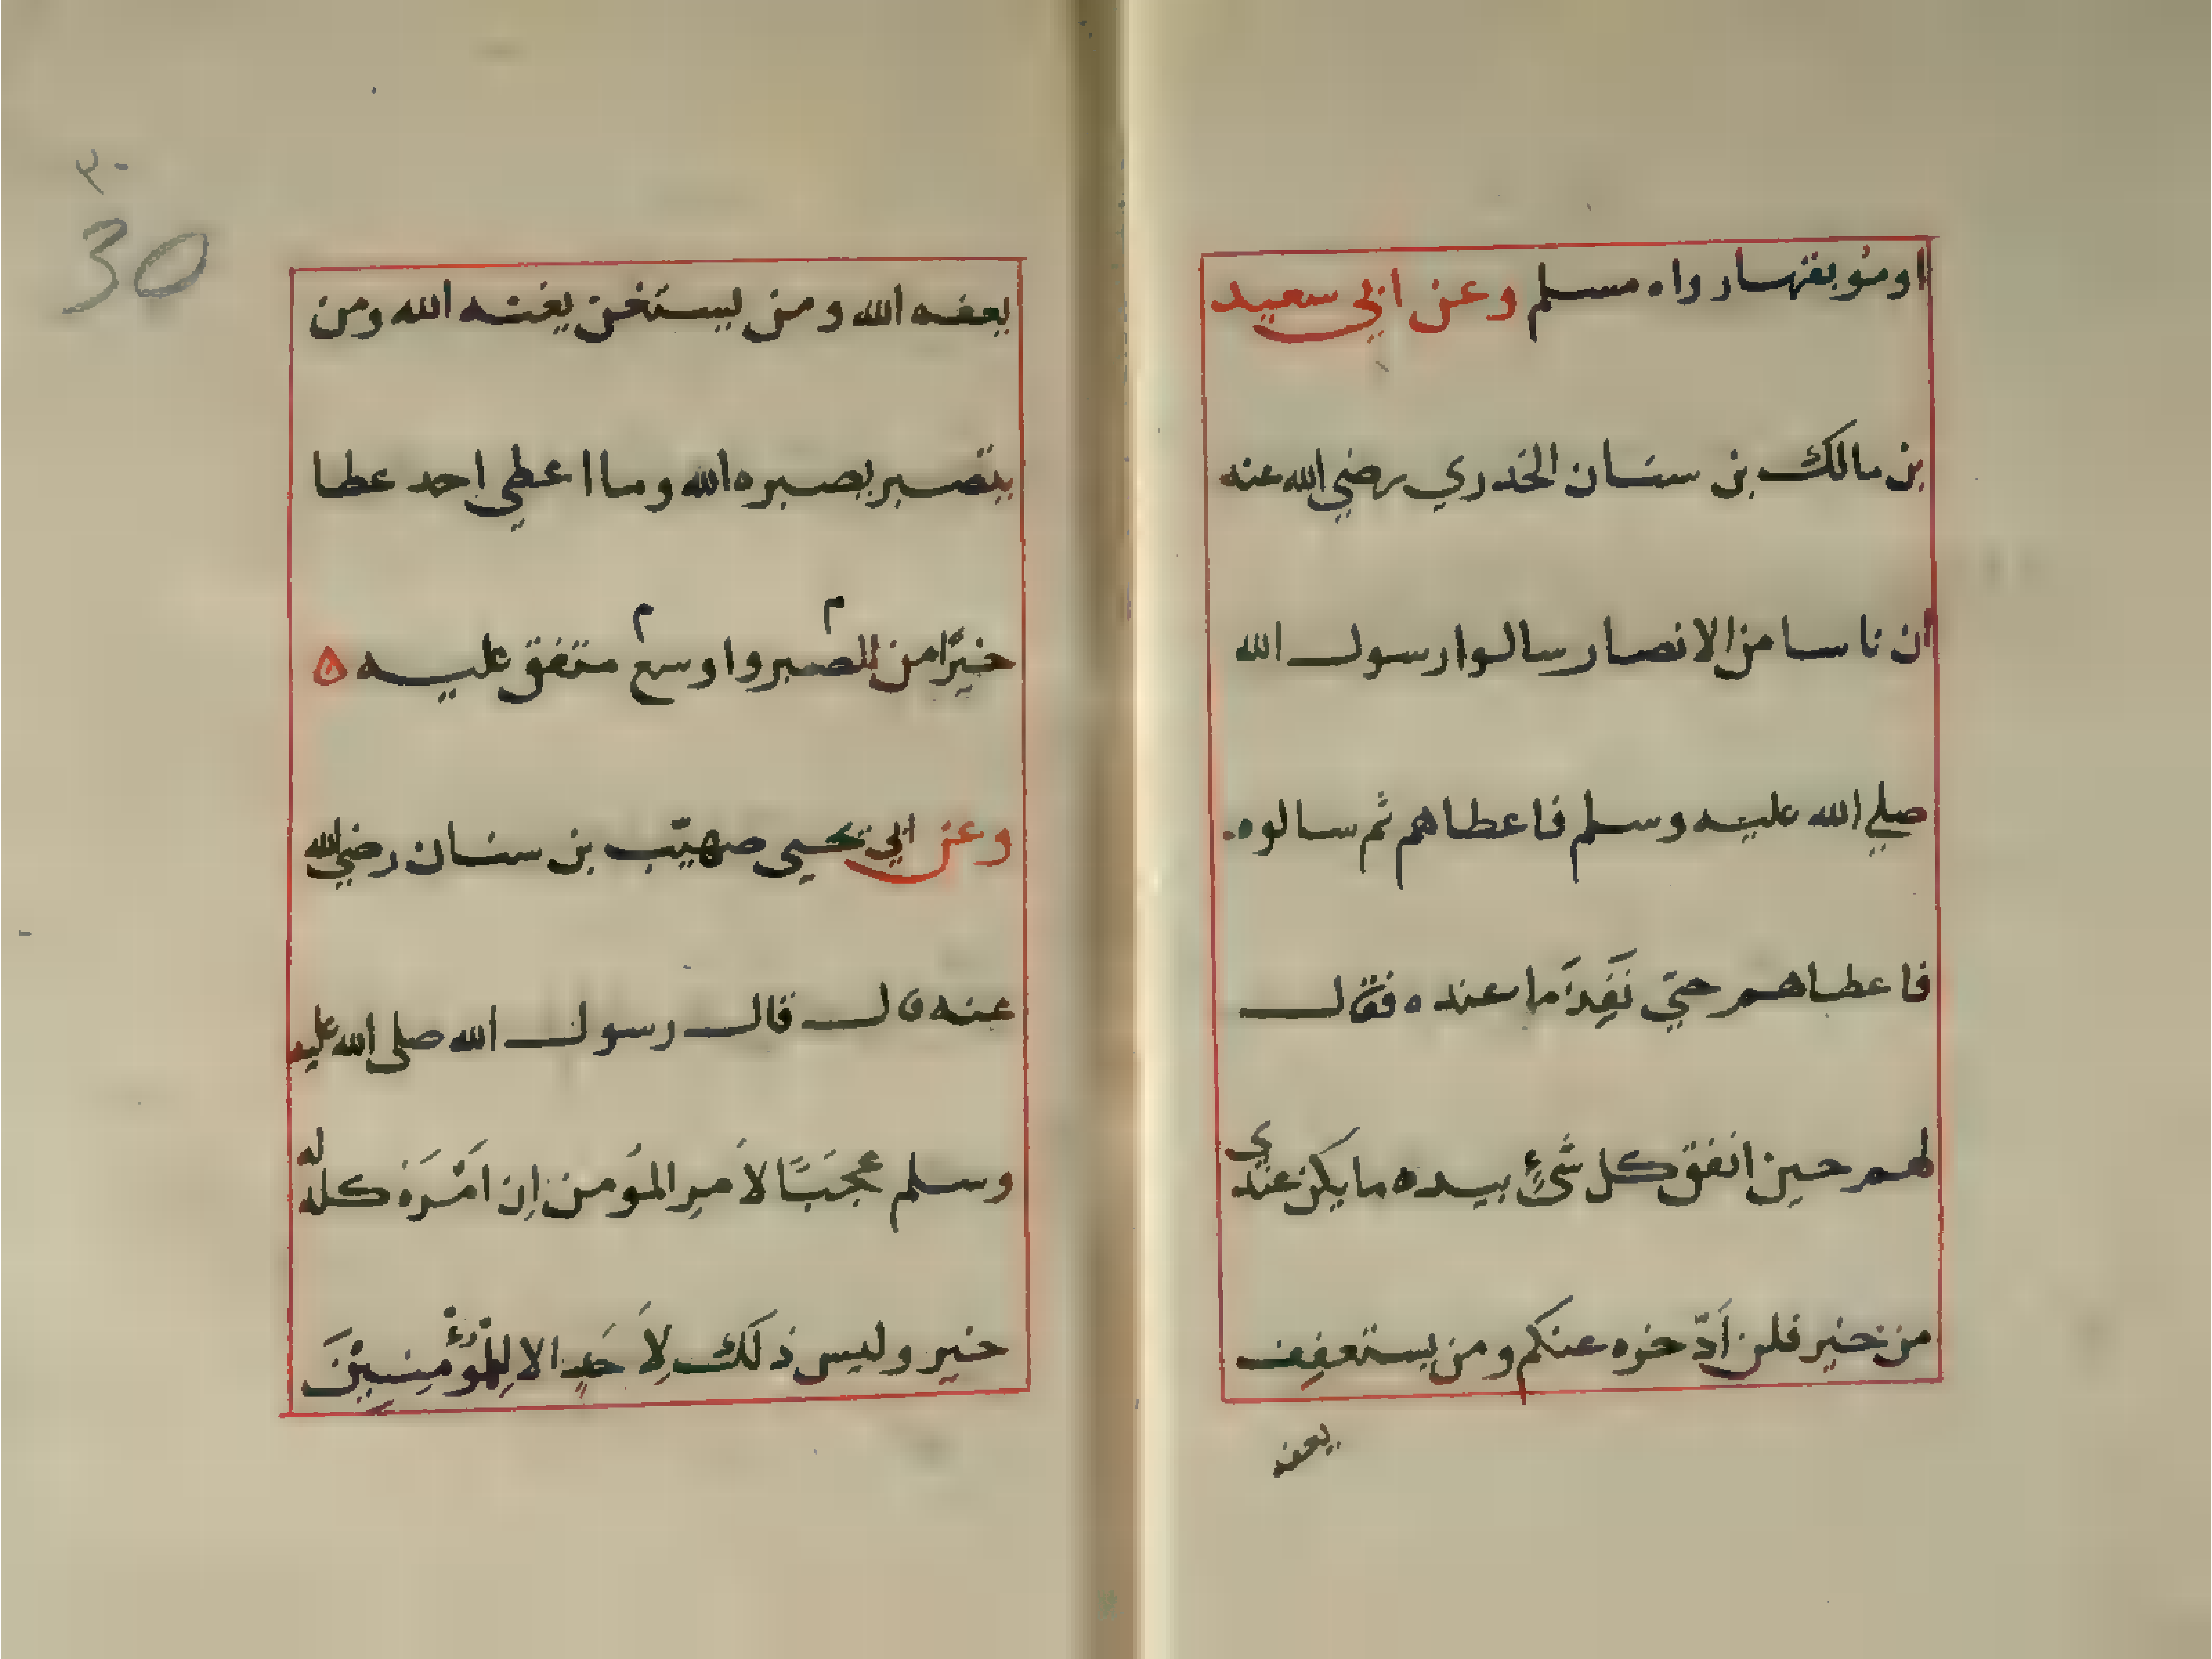 او موبقها رواه مسلم وعن ابي سعيد
بن مالك بن سنان الخدري رضي الله عنه
ان ناسا من الانصار سالوا رسول الله
صلي الله عليه وسلم فاعطاهم ثم سالوه
فاعطاهم حتي نَفِدَ ما عنده فقال
لهم حين انفق كل شيءٍ بيده ما يكن عندي
من خير فلن اَدّخره عنكم ومن يستعفِف
يعفه
٣٠
30
يعفه الله ومن يستغن يغنه الله ومن
يتصبر يصبره الله وما اعطي احد عطا
خيرًا من للصبر واوسع متفق عليه ه
م م
وعن ابي يحيى صهيب بن سنان رضي الله
عنه قال قال رسول الله صلى الله عليه
وسلم عجَبًا لاَمرِ المؤمن اِن امْرَهُ كله لهُ
خير وليس ذلَك لِاَحَدٍ الا لِلمُؤْمِنِيْنَ